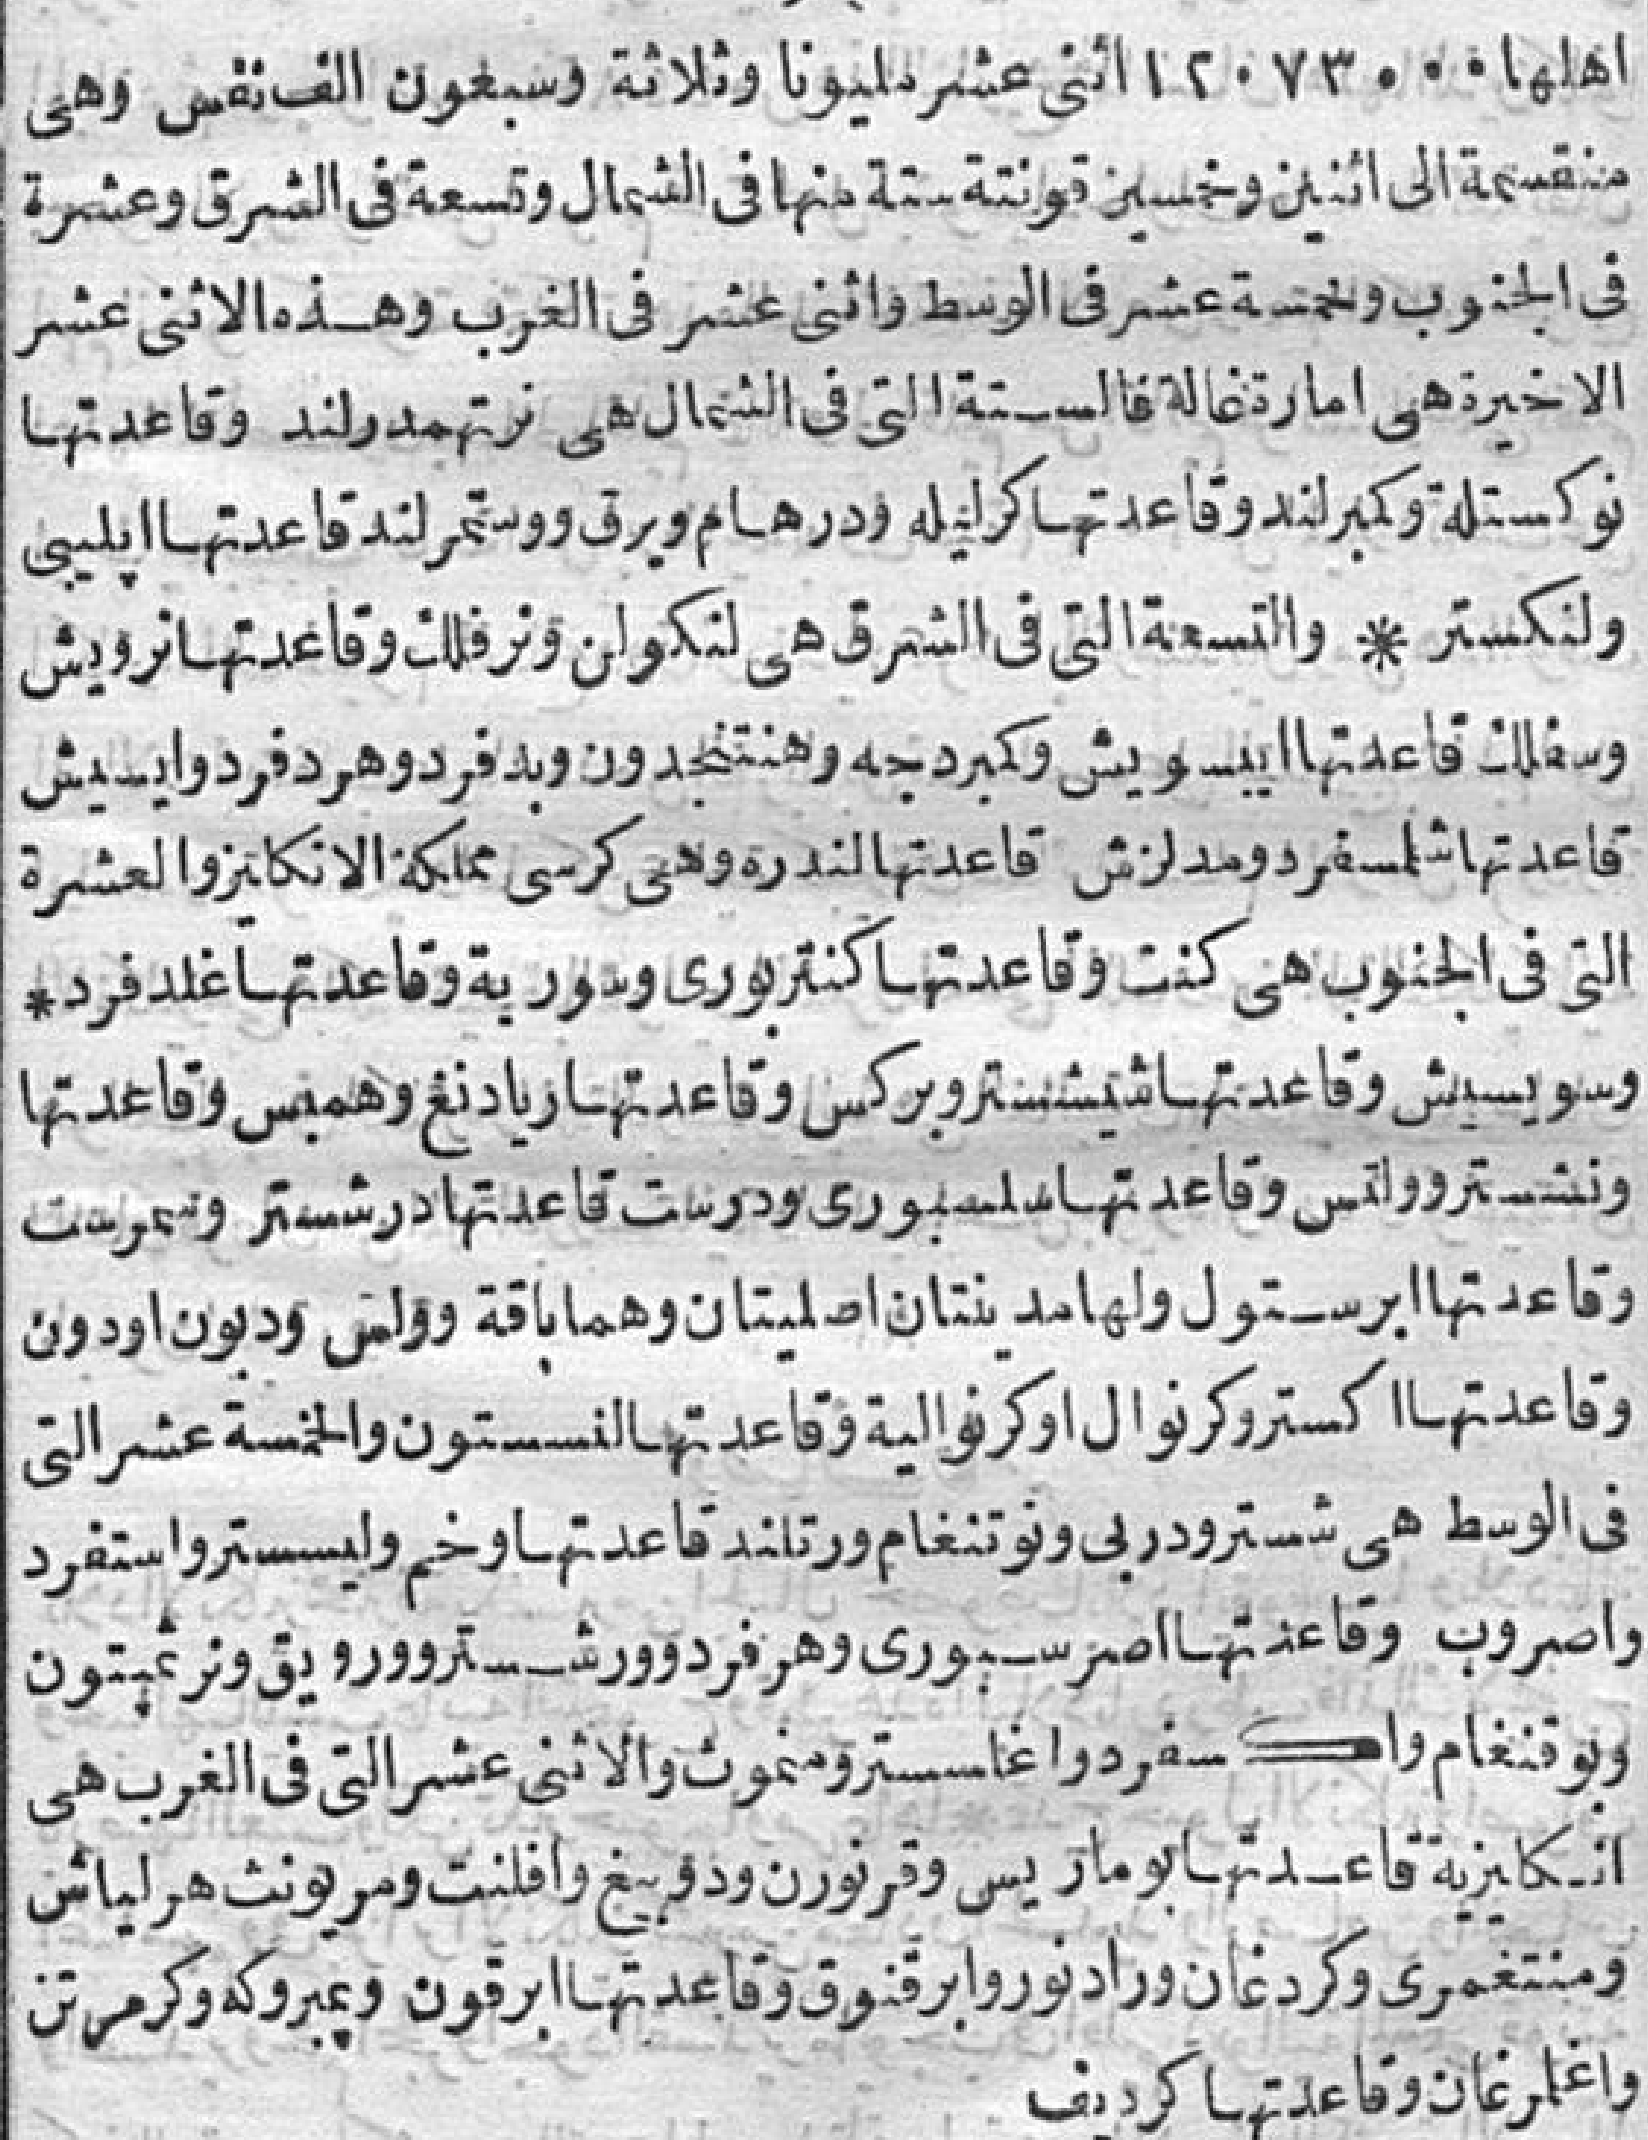 اهلها ١٢٠٧٣٠٠٠ اثنى عشر مليونا وثلاثة وسبعون الف نفس وهى
منقسمة الى اثنين وخمسين قونتة ستة منها فى الشمال وتسعة فى الشرق وعشرة
فى الجنوب وخمسة عشر فى الوسط واثنى عشر فى الغرب وهذه الاثنى عشر
الاخيرة هى امارة غالة فالستة التى فى الشمال هى نرتهمدرلند وقاعدتها
نوكستلة وكمبرلند وقاعدتها كرليله ودرهام ويرق ووستمرلند قاعدتها اپليبى
ولنكستر * والتسعة التى فى الشرق هى لنكولن ونرفلك وقاعدتها نرويش
وسفلك قاعدتها ايبسويش وكمبردجه وهنتنجدون وبدفرد وهردفرد وايسيش
قاعدتها شلمسفرد ومدلزش قاعدتها لندره وهى كرسى مملكة الانكليز والعشرة
التى فى الجنوب هى كنت وقاعدتها كنتربورى وسورية وقاعدتها غلدفرد *
وسويسيش وقاعدتها شيشستر وبركس وقاعدتها زيادنغ وهمبس وقاعدتها
ونشستر وولتس وقاعدتها سلسبورى ودرست قاعدتها درشستر وسمرست
وقاعدتها ابرستول ولها مدينتان اصليتان وهما باقة وولس وديون اودون
وقاعدتها اكستر وكرنوال اوكرنوالية وقاعدتها لنسستون والخمسة عشر التى
فى الوسط هى شستر ودربى ونوتنغام ورتلند قاعدتها وخم وليسستر واستفرد
واصبروب وقاعدتها اصبرسبورى وهرفرد وورشستر وورويق ونرغپتون
وبوقنغام واكسفرد واغلسستر ومنموث والاثنى عشر التى فى الغرب هى
انكليزية قاعدتها بوماريس وقرنورن ودوبيغ وافلنت ومريونث هرلياش
ومنتغمرى وكردغان ورادنور وابرقنوق وقاعدتها ابرقون وپمبروكه وكرمرتن
واغلمرغان وقاعدتها كرديف